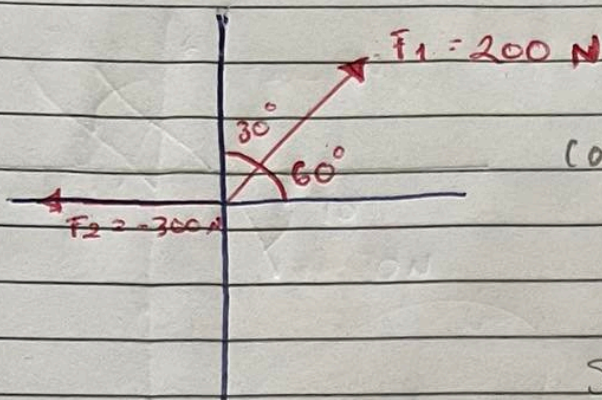 F1 = 200 N
30°
60°
F2 = -300 N
(0
S